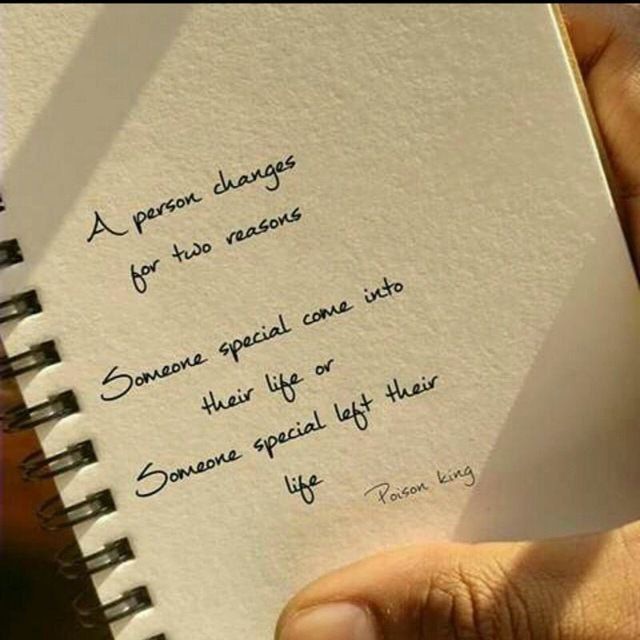 A person changes
for two reasons
Someone special come into
their life or
Someone special left their
life
Poison king